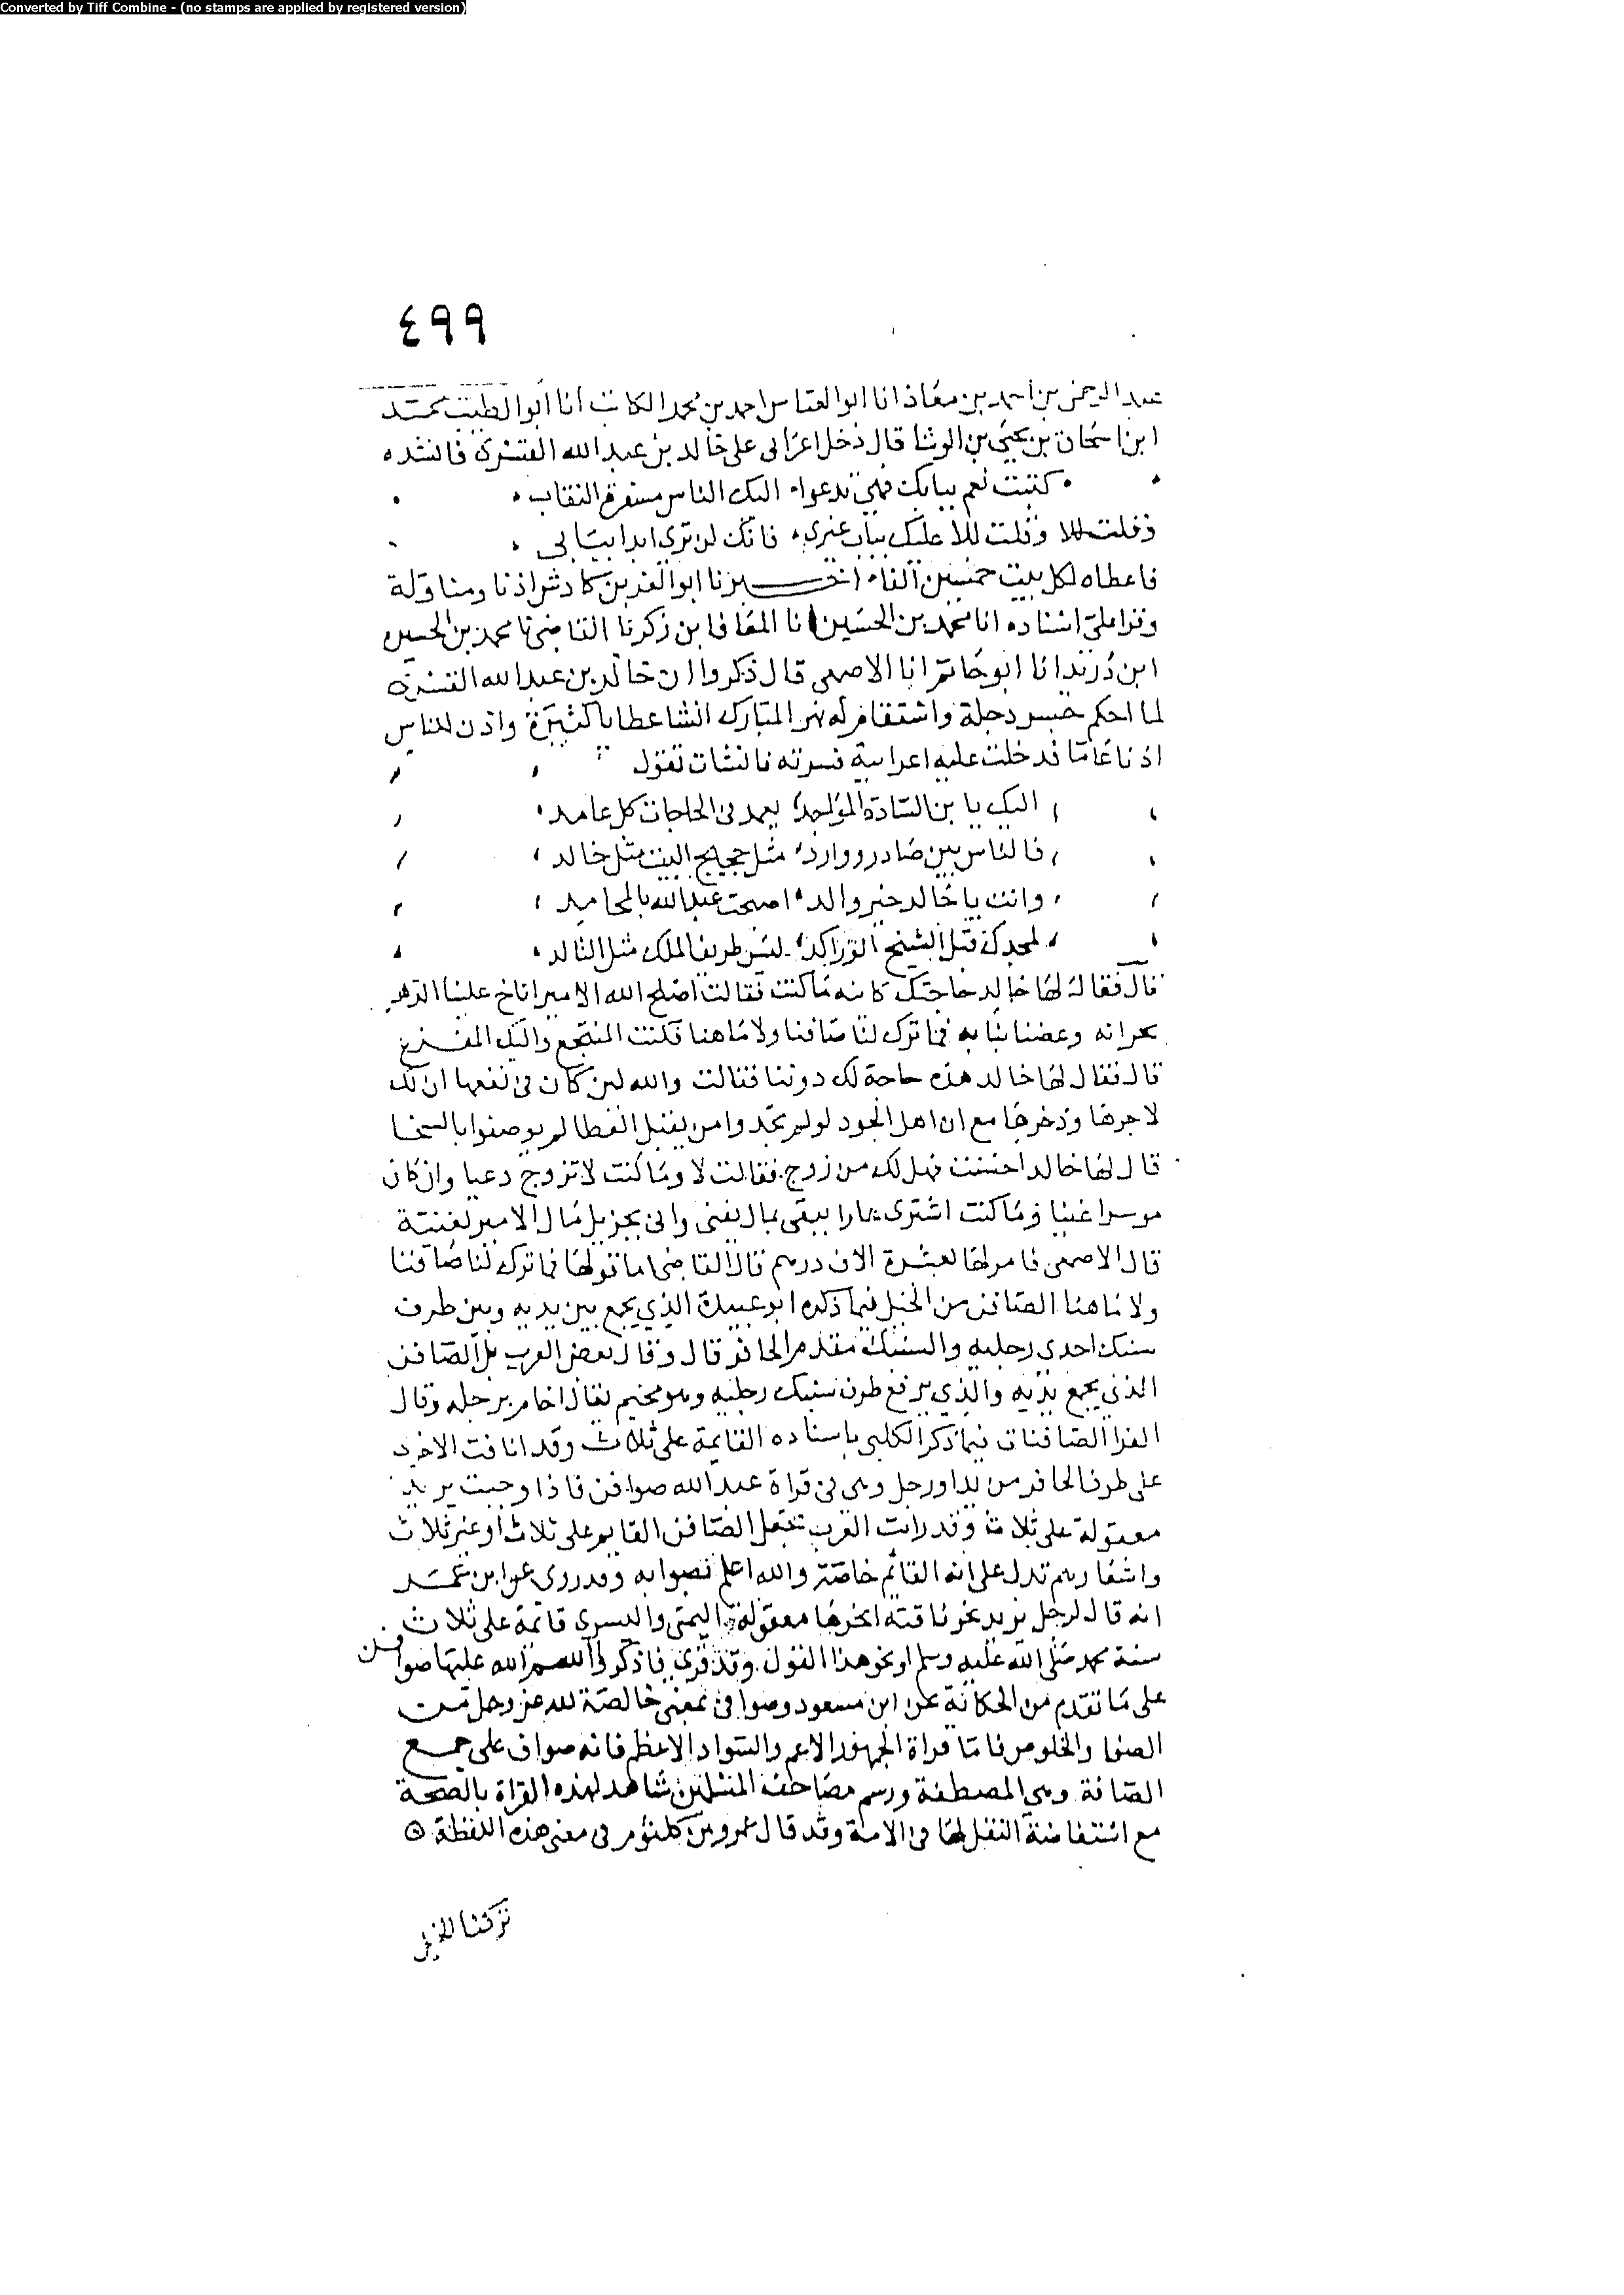 Converted by Tiff Combine - (no stamps are applied by registered version)
٤٩٩
عبد الرحمن بن احمد بن معاذ انا ابو العباس احمد بن محمد الكاتب انا ابو الطيب محمد
ابن اسحاق بن يحيى بن الوشا قال دخل اعرابى على خالد بن عبد الله القسرى فانشده
كتبت نعم ببابك فهى تدعوا اليك الناس مسفرة النقاب
وقلت للا عليك بباب غيرى فانك لن ترى ابدا ببابى
فاعطاه لكل بيت خمسين الفا اخبرنا ابو العز بن كادش اذنا ومناولة
وقرا على اسناده انا محمد بن الحسين انا المعافا بن زكريا القاضى نا محمد بن الحسين
ابن دريد انا ابو حاتم انا الاصمعى قال ذكروا ان خالد بن عبد الله القسرى
لما احكم جسر دجلة واستقام له نهر المبارك انشا عطايا كثيرة واذن للناس
اذنا عاما فدخلت عليه اعرابية قسرية فانشات تقول
اليك يا بن السادة المواجد يعمد فى الحاجات كل عامد
فالناس بين صادر ووارد مثل حجيج البيت مثل خالد
وانت يا خالد خير والد اصبحت عبد الله بالمحامد
لمجدك قبل الشمخ الرواكد ليس طريف الملك مثل التالد
قال فقال لها خالد حاجتك كاينة ما كنت فقالت اصلح الله الامير اناخ علينا الدهر
بجرانه وعضنا بنابه فما ترك لنا صافنا ولا ماهنا فكنت المنتجع واليك المفزع
قال فقال لها خالد هذه حاجة لك دوننا فقالت والله لين كان فى نفعها ان لك
لاجرها وذخرها مع ان اهل الجود لو لم يجدوا من يقبل العطا لم يوصفوا بالسخا
قال لها خالد احسنت فهل لك من زوج فقالت لا وما كنت لاتزوج دعيا وان كان
موسرا غنيا وما كنت اشترى عارا يبقى بمال يفنى وانى بجزيل مال الامير لغنية
قال الاصمعى فامر لها بعشرة الاف درهم قال القاضى اما قولها فما ترك لنا صافنا
ولا ماهنا الصافن من الخيل فيما ذكره ابو عبيدة الذي يجمع بين يديه وبين طرف
سنبك احدى رجليه والسنبك مقدم الحافر قال وقال بعض العرب بل الصافن
الذي يجمع يديه والذي يرفع طرف سنبك رجليه وهو مخيم يقال اخام برجله وقال
الفرا الصافنات فيما ذكر الكلبى باسناده القايمة على ثلاث وقد اقامت الاخرى
على طرف الحافر من يد او رجل وهى فى قراة عبد الله صوافن فاذا وجبت يريد
معقولة على ثلاث وقد رايت العرب تجعل الصافن القايم على ثلاث او غير ثلاث
واشعارهم تدل على انه القائم خاصة والله اعلم بصوابه وقد روى عن ابن عمر
انه قال لرجل يريد نحر ناقته انحرها معقولة اليمنى واليسرى قائمة على ثلاث
سنة محمد صلى الله عليه وسلم او نحو هذا القول وقد قرى فاذكروا اسم الله عليها صوافن
على ما تقدم من الحكاية عن ابن مسعود وصوافى بمعنى خالصة لله عز وجل من
الصفا والخلوص فاما قراة الجمهور الاعم والسواد الاعظم فانه صواف على جمع
الصافة وهى المصطفة ورسم مصاحف المسلمين شاهد لهذه القراة بالصحة
مع استفاضة النقل لها فى الامة وقد قال عمرو بن كلثوم فى معنى هذه اللفظة
تركنا الخيل